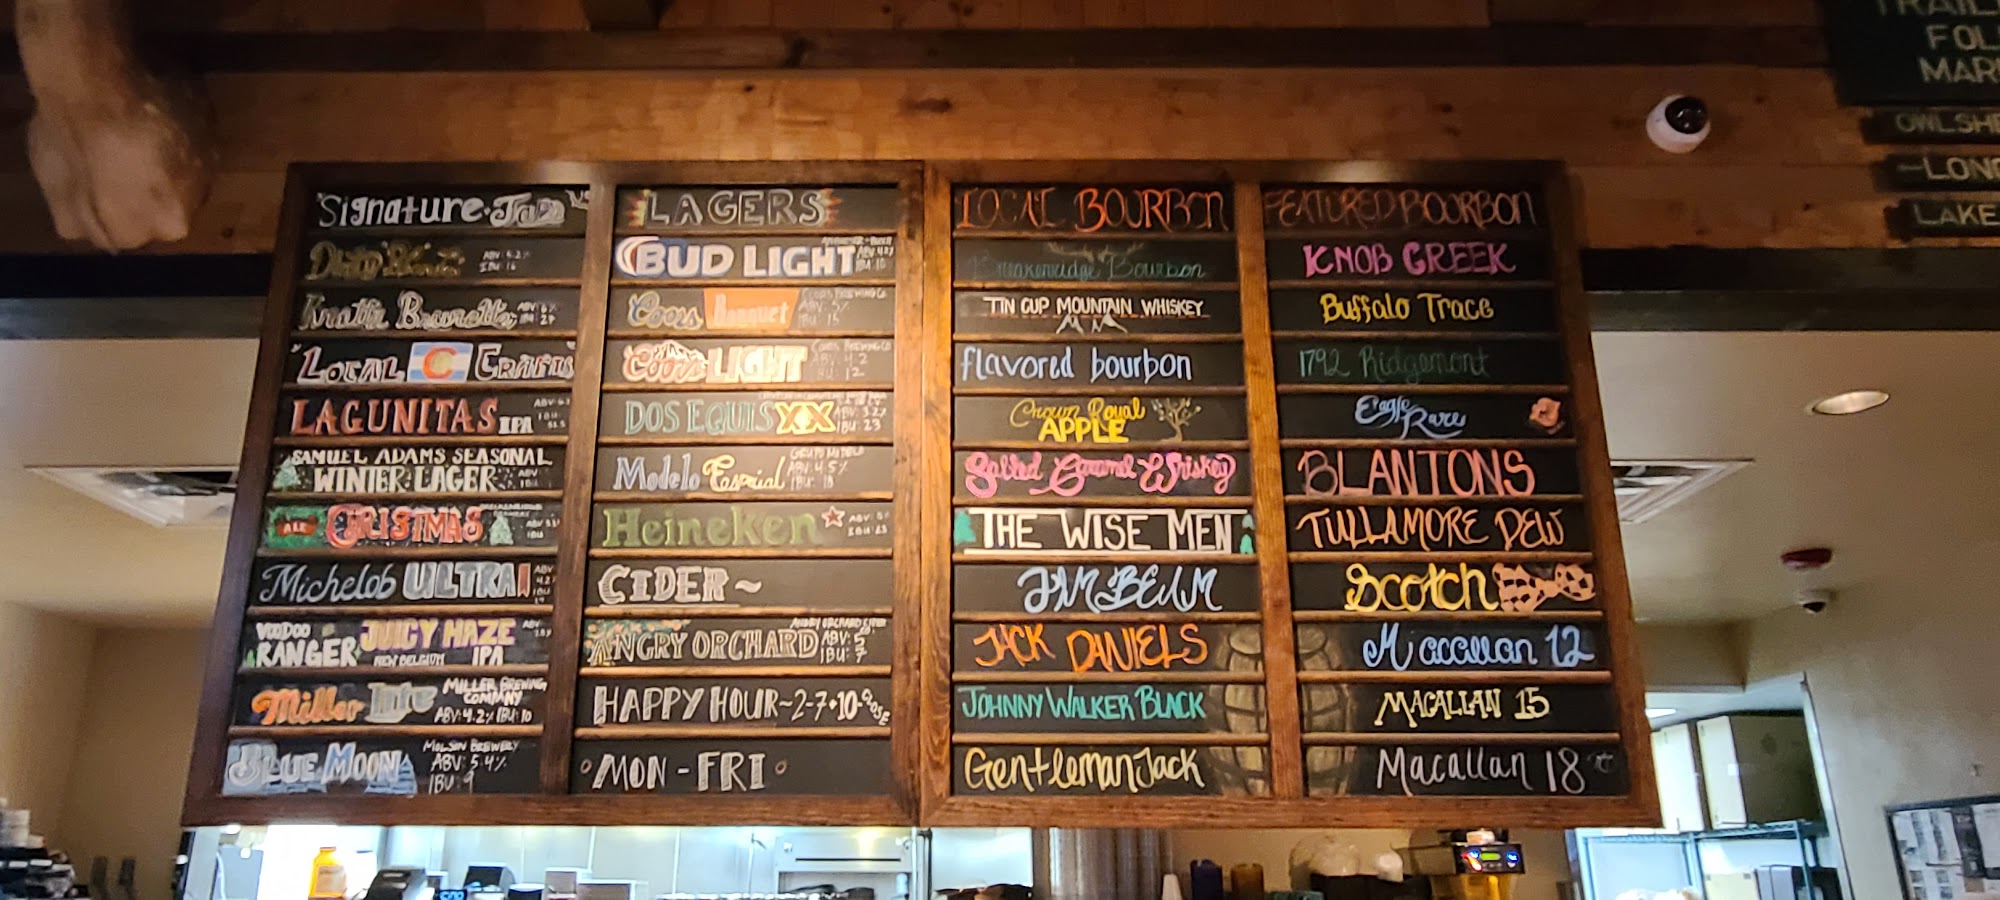 Signature
ABV 6.2%
IBU 16
Local C Crafts
LAGUNITAS IPA
SAMUEL ADAMS SEASONAL
WINTER LAGER
ALE CHRISTMAS
Michelob ULTRA
VOODOO RANGER JUICY HAZE
NEW BELGIUM IPA
Miller Lite MILLER BREWING COMPANY
ABV: 4.2% IBU: 10
BLUE MOON MOLSON BREWERY
ABV: 5.4%
IBU: 9
LAGERS
BUD LIGHT
Coors Banquet COORS BREWING CO
ABV: 5%
IBU: 15
Coors LIGHT COORS BREWING CO
ABV: 4.2
IBU: 12
DOS EQUIS XX
IBU: 23
Modelo Especial
ABV: 4.5%
IBU: 18
Heineken
CIDER~
ANGRY ORCHARD
ABV: 5
IBU: 7
HAPPY HOUR~2-7+10-close
MON-FRI
LOCAL BOURBON
Breckenridge Bourbon
TIN CUP MOUNTAIN WHISKEY
flavored bourbon
Crown Royal
APPLE
Salted Caramel Whiskey
THE WISE MEN
JIM BEAM
JACK DANIELS
JOHNNY WALKER BLACK
Gentleman Jack
FEATURED BOURBON
KNOB CREEK
Buffalo Trace
1792 Ridgemont
Eagle Rare
BLANTONS
TULLAMORE DEW
Scotch
Macallan 12
MACALLAN 15
Macallan 18